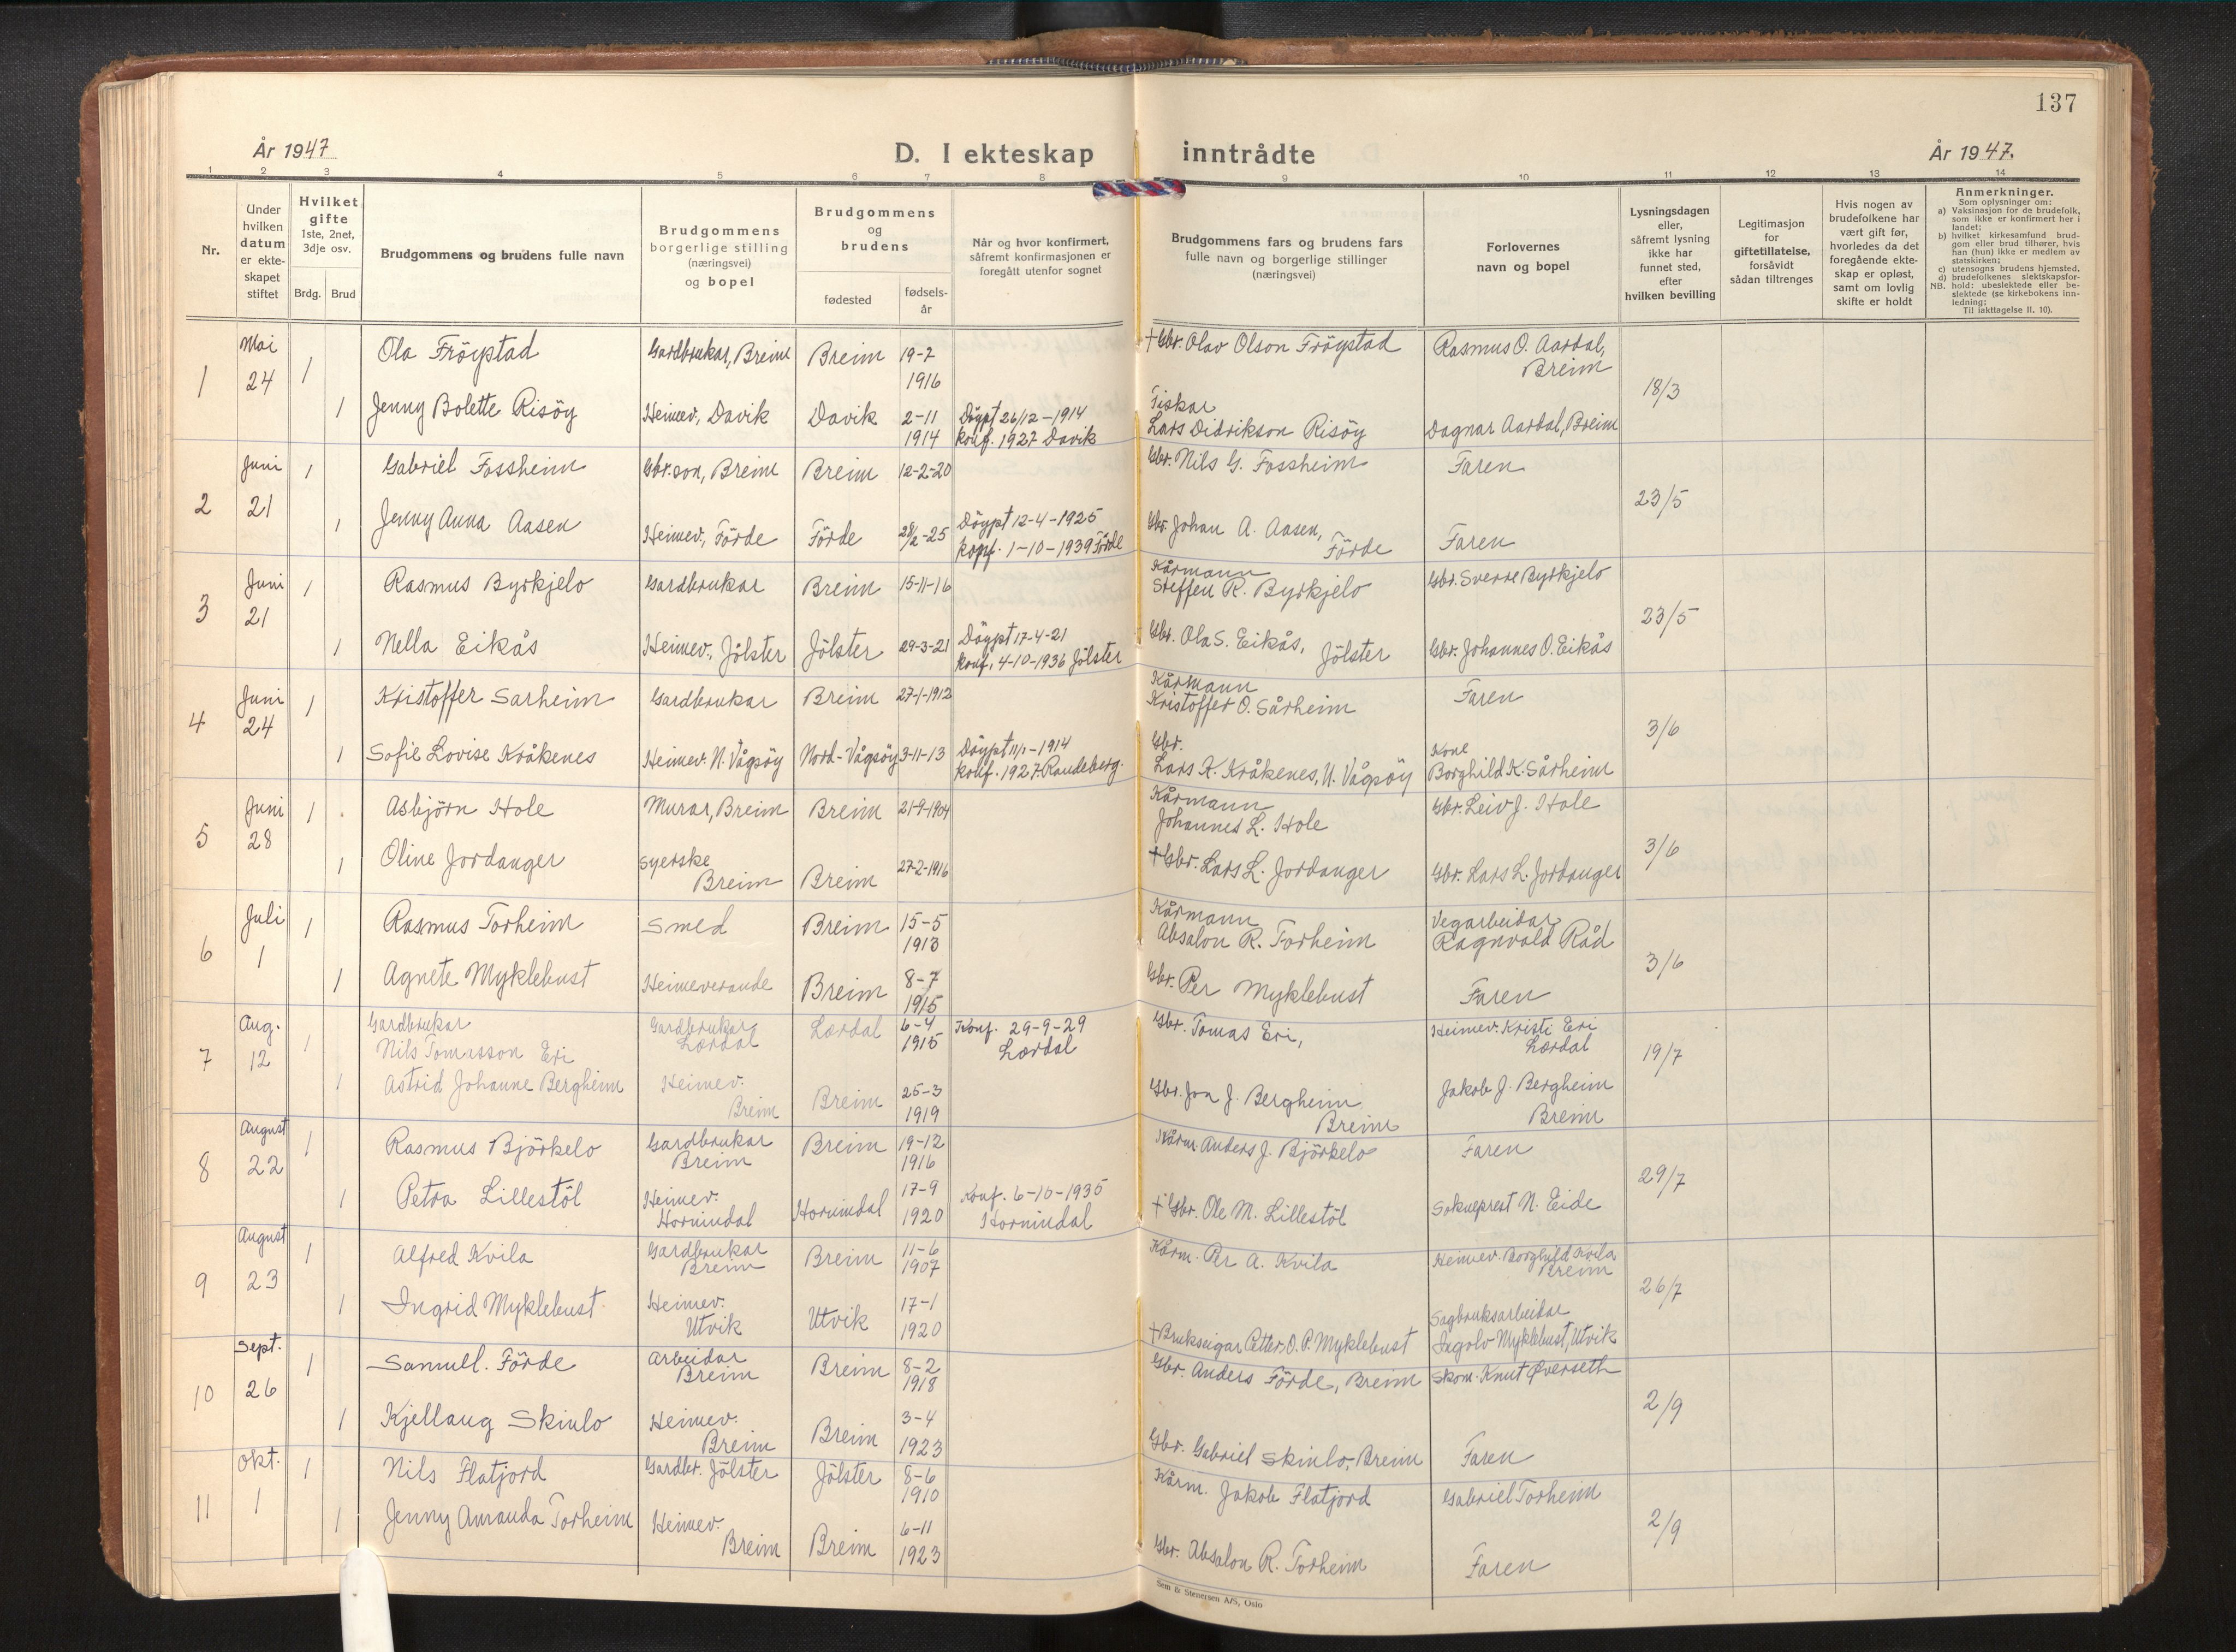 137
År 1947
D. I ekteskap inntrådte
År 1947.
1 2 3 4 5 6 7 8 9 10 11 12 13 14
Nr.
Under
hvilken
datum
er ekte-
skapet
stiftet
Hvilket
gifte
1ste, 2net,
3dje osv.
Brdg. Brud
Brudgommens og brudens fulle navn
Brudgommens
borgerlige stilling
(næringsvei)
og bopel
Brudgommens
og
brudens
fødested
fødsels-
år
Når og hvor konfirmert,
såfremt konfirmasjonen er
foregått utenfor sognet
Brudgommens fars og brudens fars
fulle navn og borgerlige stillinger
(næringsvei)
Forlovernes
navn og bopel
Lysningsdagen
eller,
såfremt lysning
ikke har
funnet sted,
efter
hvilken bevilling
Legitimasjon
for
giftetillatelse,
forsåvidt
sådan tiltrenges
Hvis nogen av
brudefolkene har
vært gift før,
hvorledes da det
foregående ekte-
skap er opløst,
samt om lovlig
skifte er holdt
Anmerkninger.
Som oplysninger om:
a) Vaksinasjon for de brudefolk,
som ikke er konfirmert her i
landet;
b) hvilket kirkesamfund brud-
gom eller brud tilhører, hvis
han (hun) ikke er medlem av
statskirken;
c) utensogns brudens hjemsted.
d) brudefolkenes slektskapsfor-
NB. hold: ubeslektede eller be-
slektede (se kirkebokens inn-
ledning;
Til iakttagelse II, 10).
1 Mai 24 1 Ola Fröystad Gardbrukar, Breim Breim 19-7 1916 +Gbr. Olav Olson Fröystad Rasmus O. Aardal, Breim
18/3
1 Jenny Bolette Risöy Heimev., Davik Davik 2-11 1914 Döypt 26/12-1914 konf. 1927 Davik Fiskar Lars Didrikson Risöy Dagnar Aardal, Breim
2 Juni 21 1 Gabriel Fossheim Gbr.son, Breim Breim 12-2-20 Gbr. Nils G. Fossheim Faren
23/5
1 Jenny Anna Aasen Heimev., Förde Förde 28/2-25 Döypt 12-4-1925 konf. 1-10-1939 Förde Gbr. Johan A. Aasen, Förde Faren
3 Juni 21 1 Rasmus Byrkjelo Gardbrukar Breim 15-11-16 Kårmann Steffen R. Byrkjelo Gbr. Sverre Byrkjelo
23/5
1 Nella Eikås Heimev., Jölster Jölster 29-3-21 Döypt 17-4-21 konf. 4-10-1936 Jölster Gbr. Ola S. Eikås, Jölster Gbr. Johannes O. Eikås
4 Juni 24 1 Kristoffer Sarheim Gardbrukar Breim 27-1-1912 Kårmann Kristoffer O. Sårheim Faren
3/6
1 Sofie Lovise Kråkenes Heimev. N. Vågsöy Nord-Vågsöy 3-11-13 Döypt 11/1-1914 konf. 1927. Raudeberg. Gbr. Lars K. Kråkenes, N. Vågsöy Kone Borghild K. Sårheim
5 Juni 28 1 Asbjörn Hole Murar, Breim Breim 21-9-1904 Kårmann Johannes L. Hole Gbr. Leiv J. Hole
3/6
1 Oline Jordanger Syerske Breim Breim 27-2-1916 +Gbr. Lars L. Jordanger Gbr. Lars L. Jordanger
6 Juli 1 1 Rasmus Torheim Smed Breim 15-5 1913 Kårmann Absalon R. Torheim Vegarbeidar Ragnvald Råd
3/6
1 Agnete Myklebust Heimeverande Breim 8-7 1915 Gbr. Per Myklebust Faren
7 Aug. 12 1 Gardbrukar Nils Tomasson Eri Gardbrukar Lærdal Lærdal 6-4 1915 Konf. 29-9-29 Lærdal Gbr. Tomas Eri, Heimev. Kristi Eri Lærdal
19/7
1 Astrid Johanne Bergheim Heimev. Breim Breim 25-3 1919 Gbr. Jon J. Bergheim Breim Jakob J. Bergheim Breim
8 August 22 1 Rasmus Björkelo Gardbrukar Breim Breim 19-12 1916 Kårm. Anders J. Björkelo Faren
29/7
1 Petra Lillestöl Heimev. Hornindal Hornindal 17-9 1920 Konf. 6-10-1935 Hornindal + Gbr. Ole M. Lillestöl Sokneprest N. Eide
9 August 23 1 Alfred Kvila Gardbrukar Breim Breim 11-6 1907 Kårm. Per A. Kvila Heimev. Borghild Kvila Breim
26/7
1 Ingrid Myklebust. Heimev. Utvik Utvik 17-1 1920 +Brukseigar Petter O. P. Myklebust Sagbruksarbeidar Ingolv Myklebust, Utvik
10 Sept. 26 1 Samuel. Förde Arbeidar Breim Breim 8-2 1918 Gbr. Anders Förde, Breim Skom. Knut Øverseth
2/9
1 Kjellaug Skinlo Heimev. Breim Breim 3-4 1923 Gbr. Gabriel Skinlo, Breim Faren
11 Okt. 1 1 Nils Flatjord Gardbr. Jölster Jölster 8-6 1910 Kårm. Jakob Flatjord Gabriel Torheim
2/9
1 Jenny Amanda Torheim Heimev. Breim Breim 6-11 1923 Gbr. Absalon R. Torheim Faren
Sem & Stenersen A/S, Oslo